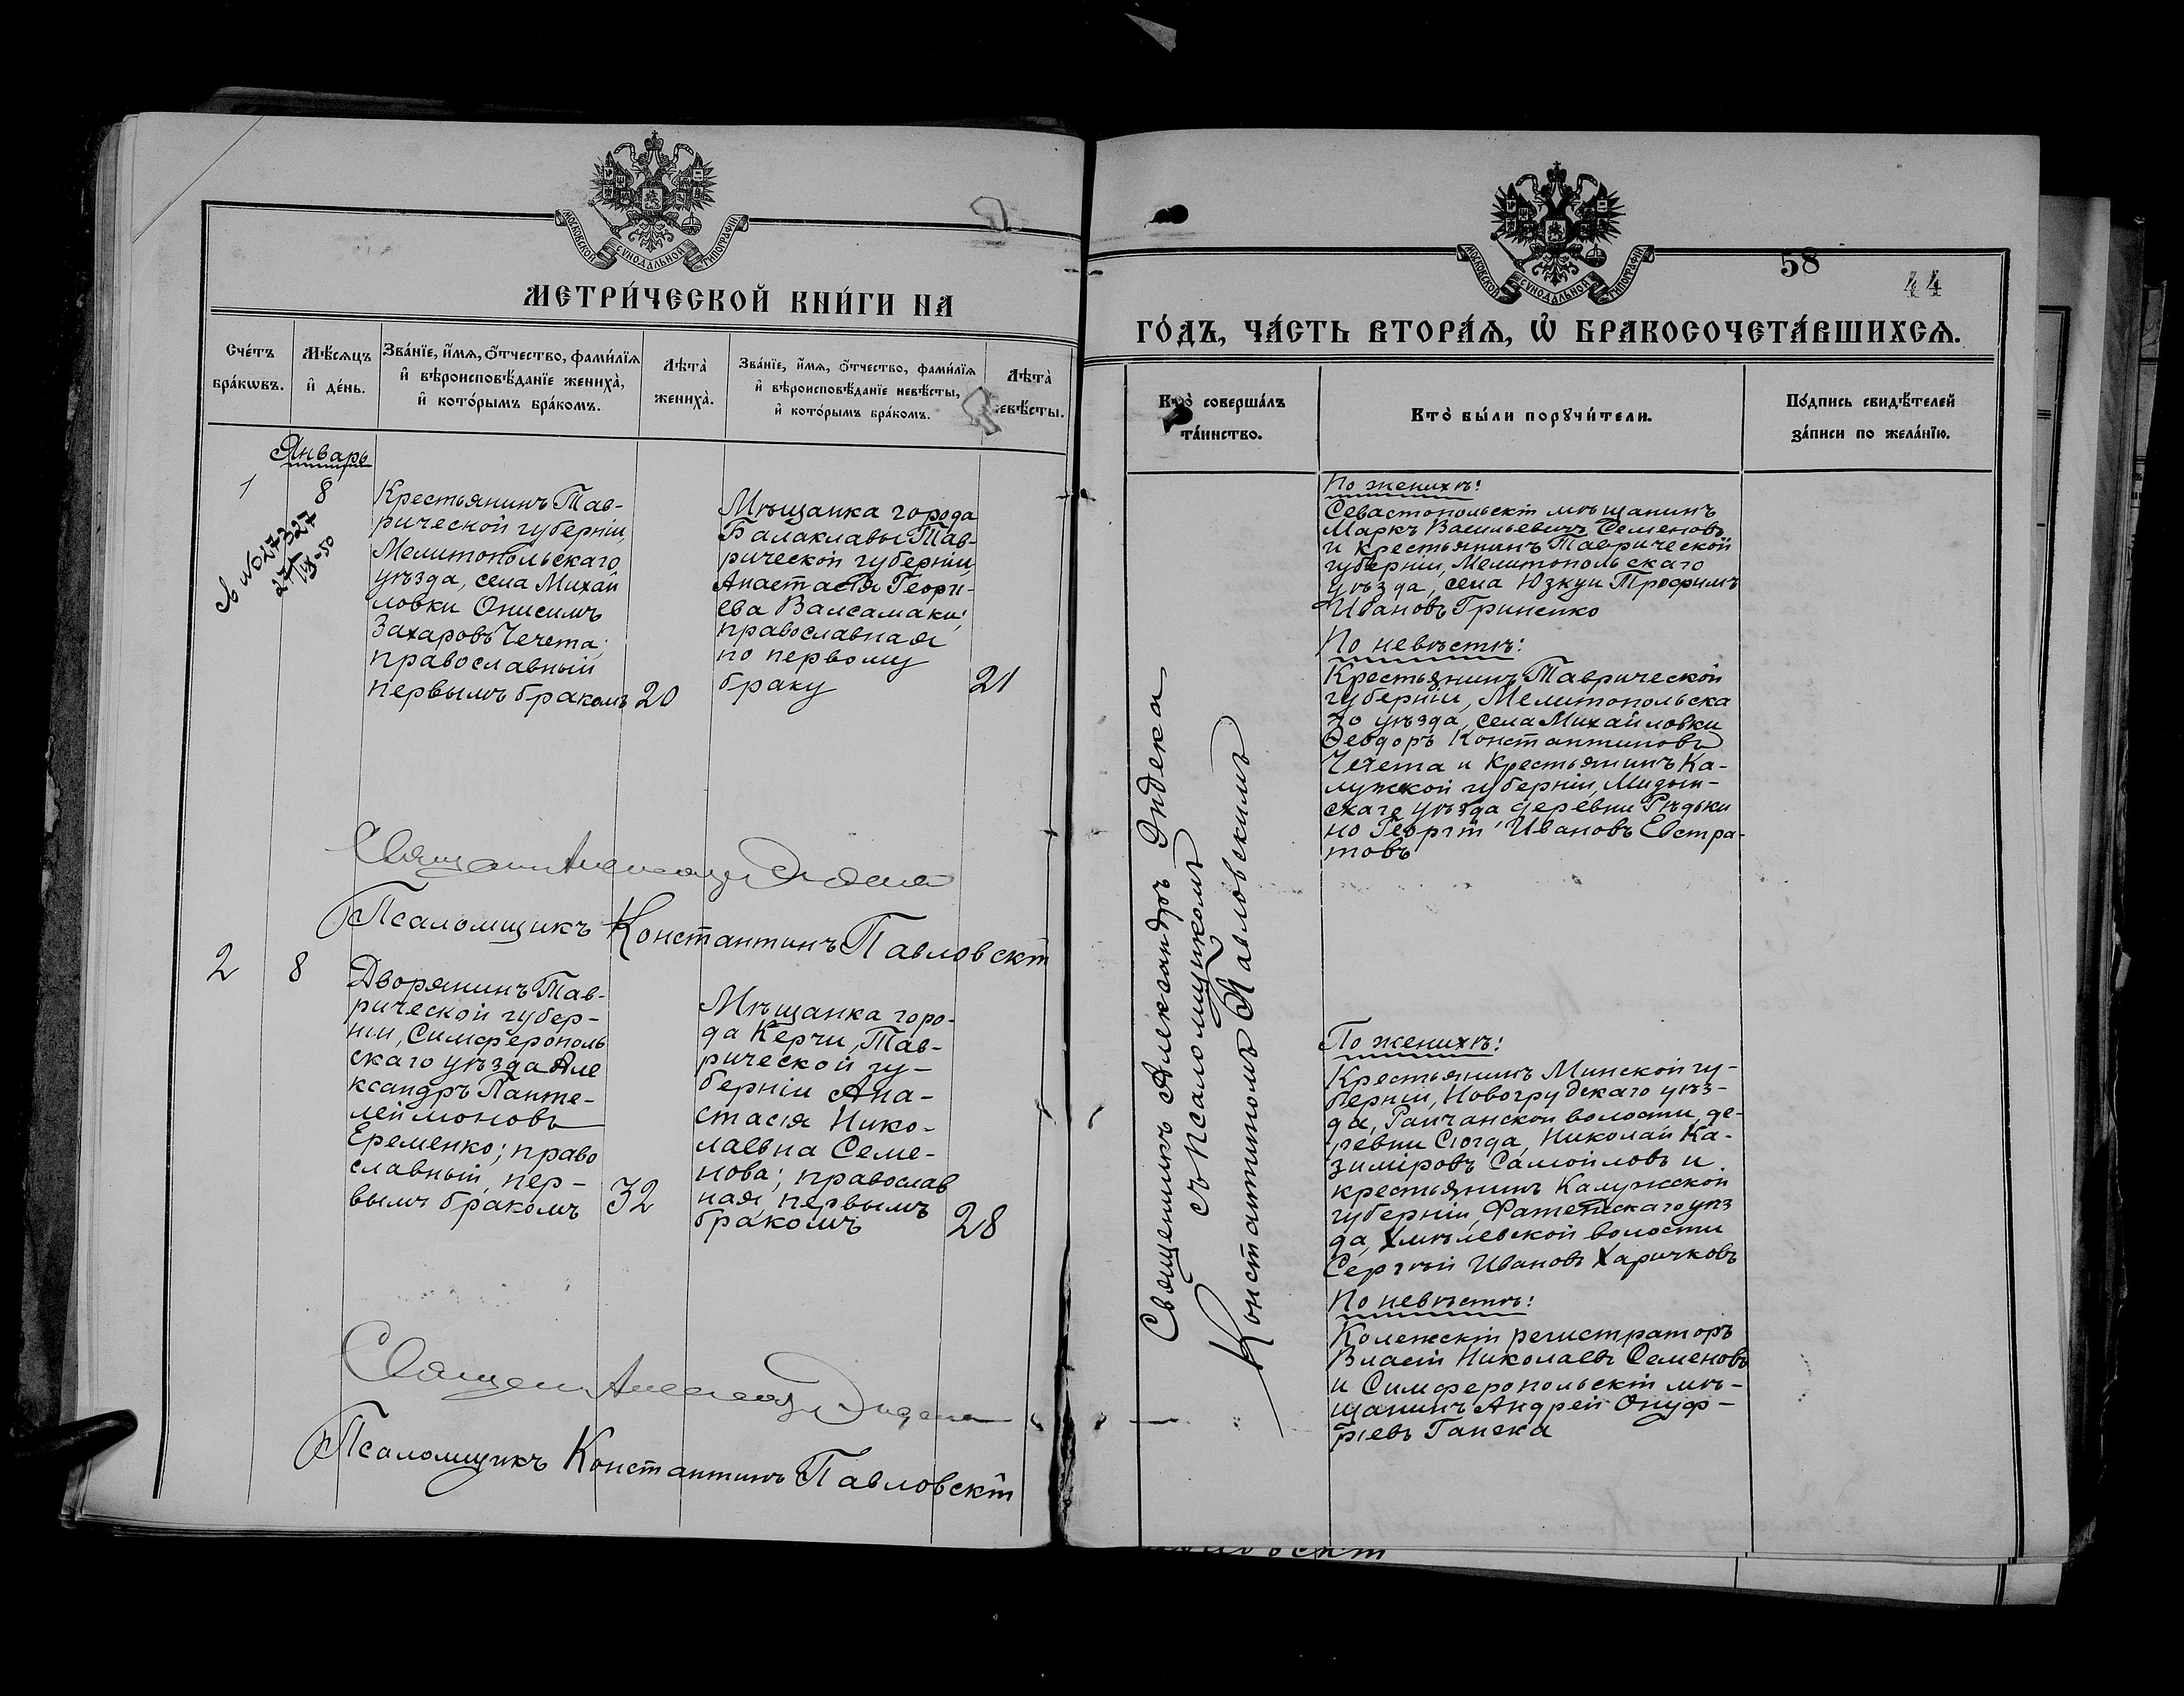 МОСКОВСКОЙ СѴНОДАЛЬНОЙ ТИПОГРАФІИ
МЕТРИ́ЧЕСКОЙ КНИ́ГИ НА
Сче́тъ бра́кωвъ.
Мѣ́сѧцъ и҆ де́нь.
Зва́нїе, и҆́мѧ, ѻ҆́тчество, фами́лїѧ
и҆ вѣроисповѣ́данїе жениха̀,
и҆ кото́рымъ бра́комъ.
Лѣта̀
жениха̀.
Зва́нїе, и҆́мѧ, ѻ҆́тчество, фами́лїѧ
и҆ вѣроисповѣ́данїе невѣ́сты,
и҆ кото́рымъ бра́комъ.
Лѣта̀
невѣ́сты.
Январь
1
8
Крестьянинъ Тав-
рической губерніи,
Мелитопольскаго
уѣзда, села Михай
ловки Онисимъ
Захаровъ Чечета;
православный
первымъ бракомъ
20
Мѣщанка города
Балаклавы Тав-
рической губерніи,
Анастасія Георгі-
ева Валсамаки;
православная
по первому
браку
21
Псаломщикъ Константинъ Павловскій
2
8
Дворянинъ Тав-
рической губер-
ніи, Симферополь
скаго уѣзда Але
ксандръ Панте-
леймоновъ
Еременко; право
славный, пер-
вымъ бракомъ
32
Мѣщанка горо-
да Керчи, Тав-
рической гу-
берніи Ана-
стасія Нико-
лаевна Семе-
нова; православ
ная, первымъ
бракомъ
28
Псаломщикъ Константинъ Павловскій
МОСКОВСКОЙ СѴНОДАЛЬНОЙ ТИПОГРАФІИ
58
44
ГО́ДЪ, ЧА́СТЬ ВТОРА́Ѧ, Ѡ҆ БРАКОСОЧЕТА́ВШИХСѦ.
Кто̀ соверша́лъ
та́инство.
Кто̀ бы́ли порꙋчи́тели.
По́дпись свидѣ́телей
за́писи по жела́нїю.
Священникъ Александръ Эндека
съ Псаломщикомъ
Константиномъ Павловскимъ
По женихѣ:
Севастопольскій мѣщанинъ
Маркъ Васильевичъ Семеновъ
и крестьянинъ Таврической
губерніи, Мелитопольскаго
уѣзда, села Юзкуи Трофимъ
Ивановъ Гриненко
По невѣстѣ:
Крестьянинъ Таврической
губерніи, Мелитопольска
го уѣзда, села Михайловки
Ѳеодоръ Константиновъ
Чечета и крестьянинъ Ка-
лужской губерніи, Мидын-
скаго уѣзда деревни Рѣдьки
но Георгій Ивановъ Евстра-
товъ
По женихѣ:
Крестьянинъ Минской гу-
берніи, Новогрудскаго уѣз-
да, Райчанской волости, де-
ревни Сюгда, Николай Ка-
зиміровъ Самойловъ и
крестьянинъ Калужской
губерніи, Фатежскаго уѣз
да, Хмѣлевской волости
Сергѣй Ивановъ Харичковъ
По невѣстѣ:
Колежскій регистраторъ
Власій Николаевъ Семеновъ
и Симферопольскій мѣ-
щанинъ Андрей Онуф-
ріевъ Ганека